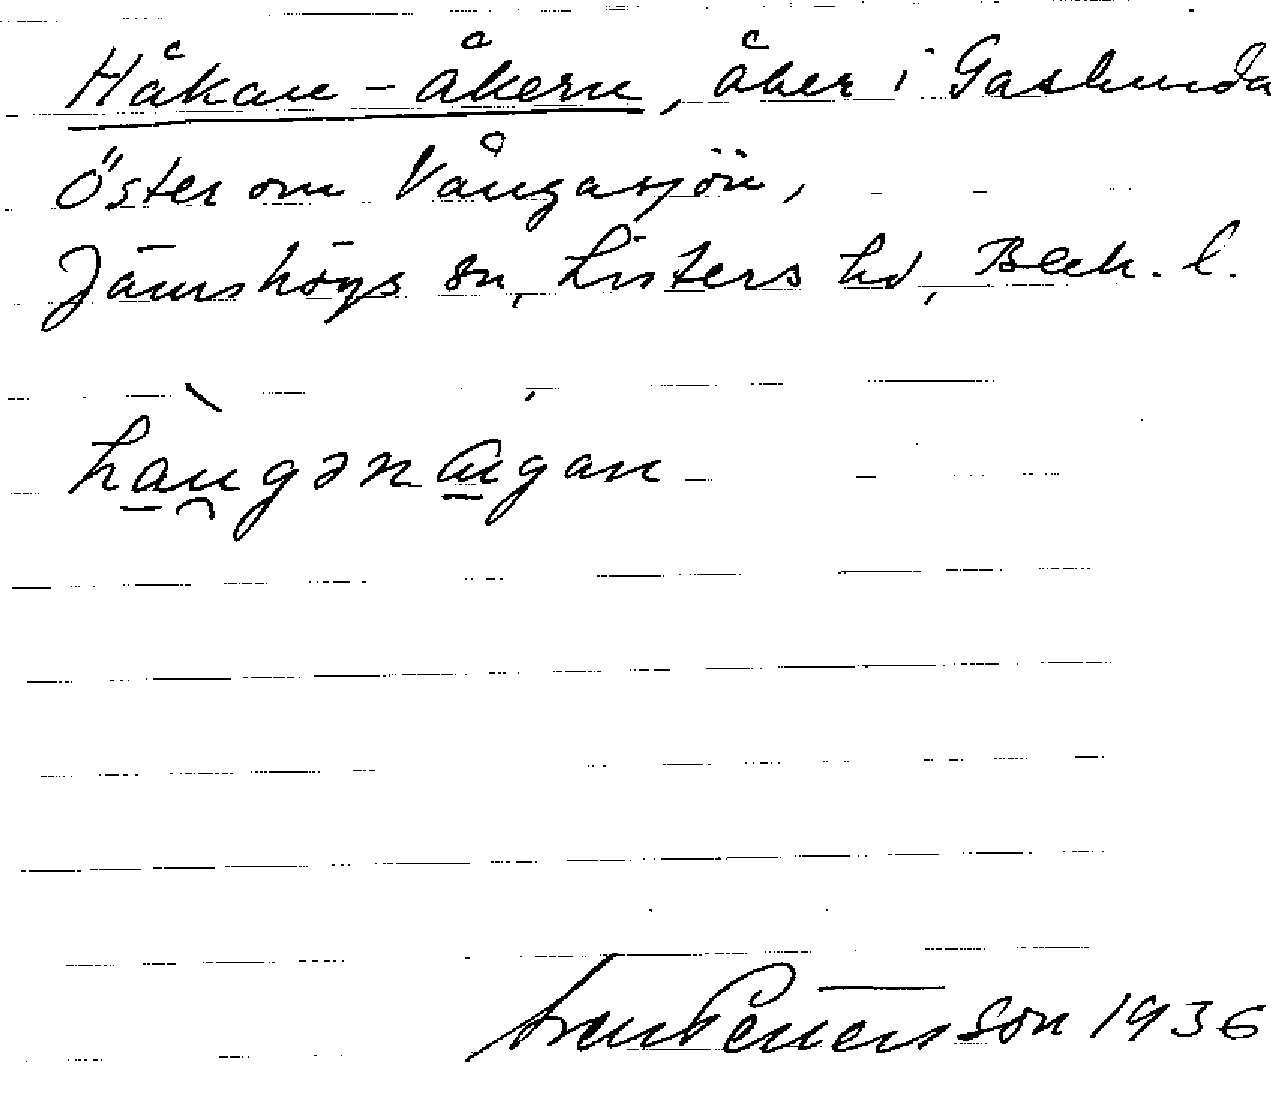 Håkan-åkern, åker i Gaslunda
Öster om Vångasjön,
Jämshögs sn, Listers hd, Blek. l.
Pettersson 1936